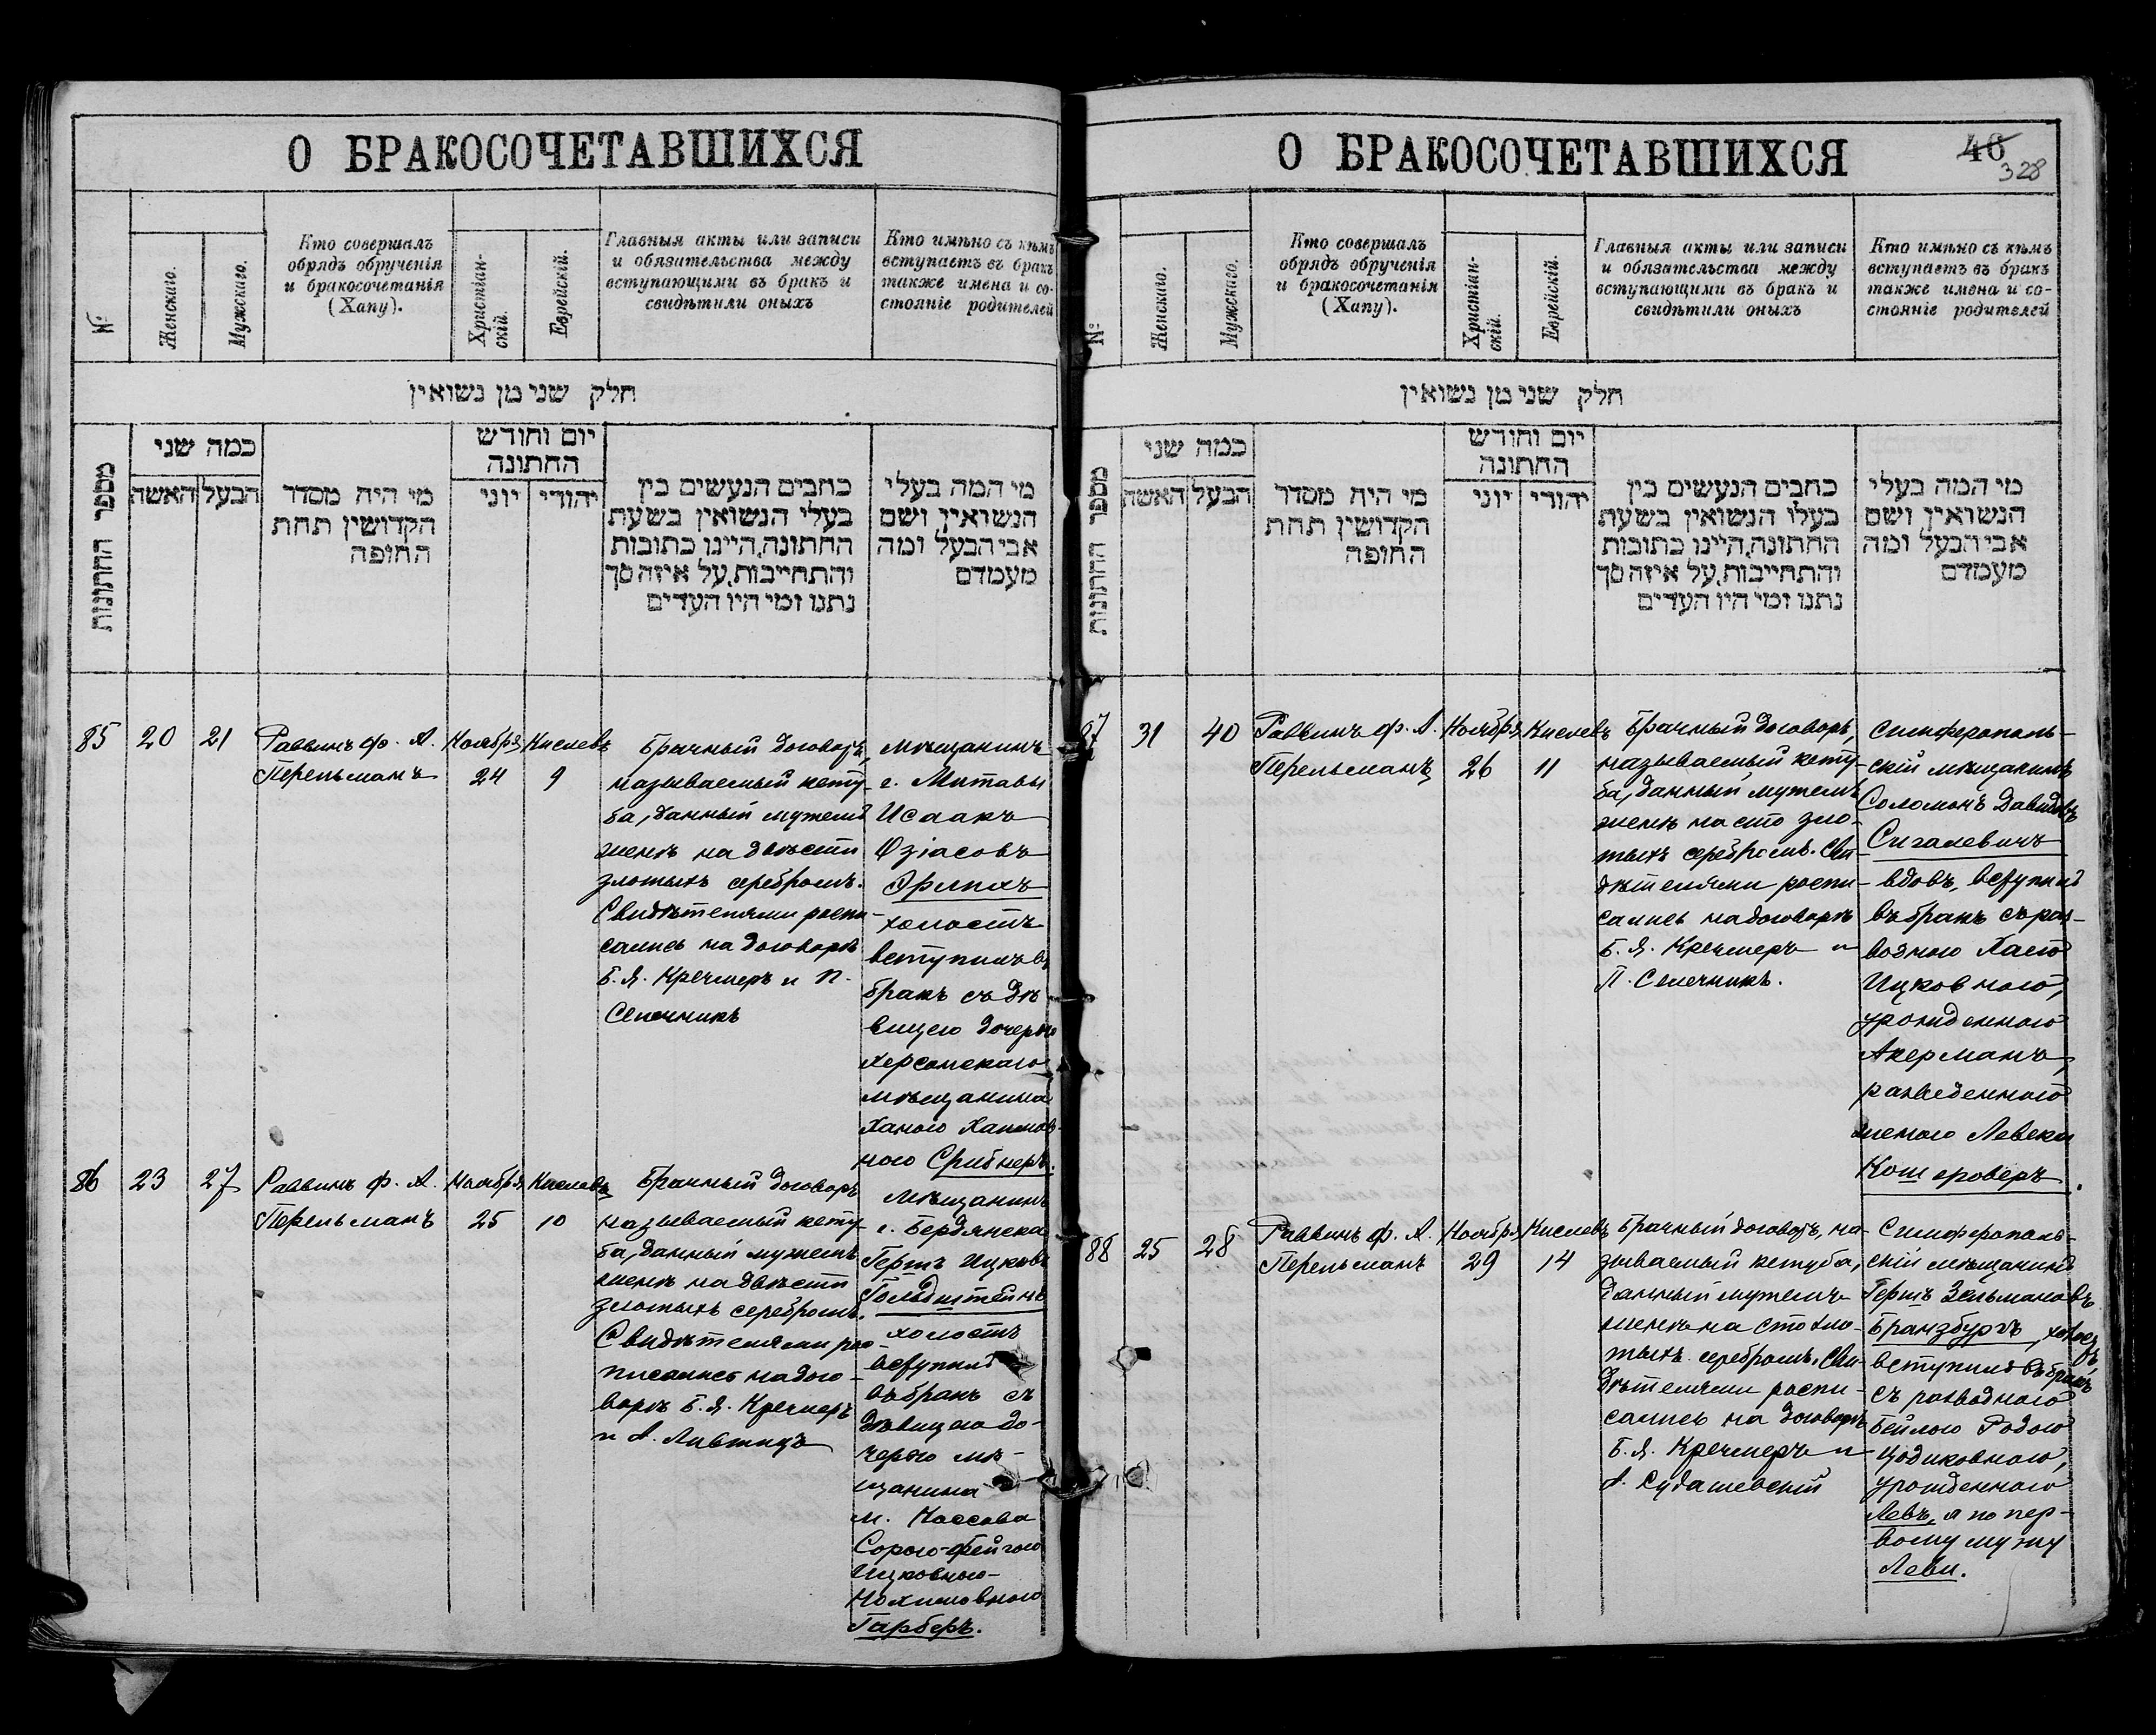 О БРАКОСОЧЕТАВШИХСЯ
№
Женскаго.
Мужскаго.
Кто совершалъ
обрядъ обрученія
и бракосочетанія
(Хапу).
Христіан-
скій.
Еврейскій.
Главныя акты или записи
и обязательства между
вступающими въ бракъ и
свидѣтили оныхъ
Кто имѣно съ кѣмъ
вступаетъ въ бракъ
также имена и со-
стояніе родителей
חלק שני מן נשואין
מספר החתונות
כמה שני
האשה
הבעל
מי היה מסדר
הקדושין תחת
החופה
יום וחודש
החתונה
יוני
יהודי
כתבים הנעשים בין
בעלי הנשואין בשעת
החתונה, היינו כתובות
והתחייבות, על איזה סך
נתנו ומי היו העדים
מי המה בעלי
הנשואין, ושם
אבי הבעל ומה
מעמדם
85
20
21
Раввинъ Ф. А.
Перельманъ
Ноября
24
Кислевъ
9
Брачный договоръ,
называемый кету-
ба, данный мужемъ
женѣ на двѣсти
злотыхъ серебромъ.
Свидѣтелями роспи-
сались на договорѣ
Б. Я. Кречмеръ и П.
Селечникъ
мѣщанинъ
г. Митавы
Исаакъ
Озіасовъ
Эрлихъ
холостъ
вступилъ въ
бракъ съ дѣ-
вицею дочерью
Херсонскаго
мѣщанина
Ханою Хаимов-
ною Срибнеръ.
86
23
27
Раввинъ Ф. А.
Перельманъ
Ноября
25
Кислевъ
10
Брачный договоръ
называемый кету-
ба, данный мужемъ
женѣ на двѣсти
злотыхъ серебромъ.
Свидѣтелями рос-
писались на дого-
ворѣ Б. Я. Кречмеръ
и А. Лившицъ
Мѣщанинъ
г. Бердянска
Гершъ Ицковъ
Гольдштейнъ
холостъ
вступилъ
въ бракъ съ
дѣвицею до-
черью мѣ-
щанина
м. Коссова
Сорою-Фейгою
Ицковною-
Нохимовною
Гарберъ.
О БРАКОСОЧЕТАВШИХСЯ
46
328
№
Женскаго.
Мужскаго.
Кто совершалъ
обрядъ обрученія
и бракосочетанія
(Хапу).
Христіан-
скій.
Еврейскій.
Главныя акты или записи
и обязательства между
вступающими въ бракъ и
свидѣтили оныхъ
Кто имѣно съ кѣмъ
вступаетъ въ бракъ
также имена и со-
стояніе родителей
חלק שני מן נשואין
מספר החתונות
כמה שני
האשה
הבעל
מי היה מסדר
הקדושין תחת
החופה
יום וחודש
החתונה
יוני
יהודי
כתבים הנעשים בין
בעלו הנשואין בשעת
החתונה, היינו כתובות
והתחייבות, על איזה סך
נתנו ומי היו העדים
מי המה בעלי
הנשואין, ושם
אבי הבעל ומה
מעמדם
87
31
40
Раввинъ Ф. А.
Перельманъ
Ноября
26
Кислевъ
11
Брачный договоръ,
называемый кету-
ба, данный мужемъ
женѣ на сто зло-
тыхъ серебромъ. Сви-
дѣтелями роспи-
сались на договорѣ
Б. Я. Кречмеръ и
П. Селечникъ.
Симферополь-
скій мѣщанинъ
Соломонъ Давидовъ
Сигалевичъ
вдовъ, вступилъ
въ бракъ съ раз-
водною Хаею
Ицковною,
урожденною
Акерманъ,
разведенною
женою Левека
Кошероверъ.
88
25
28
Раввинъ Ф. А.
Перельманъ
Ноября
29
Кислевъ
14
Брачный договоръ, на-
зываемый кетуба,
данный мужемъ
женѣ на сто зло-
тыхъ серебромъ. Сви-
дѣтелями роспи-
сались на договорѣ
Б. Я. Кречмеръ и
А. Судашевскій
Симферополь-
скій мѣщанинъ
Гершъ Зельмановъ
Бранзбургъ, холостъ
вступилъ въ бракъ
съ разводною
Бейлою Родою
Цодиковною,
урожденною
Левъ, а по пер-
вому мужу
Леви.